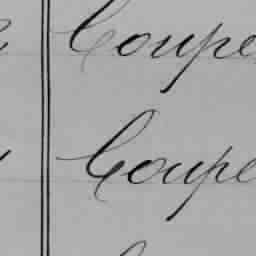 Coupe
Coupe